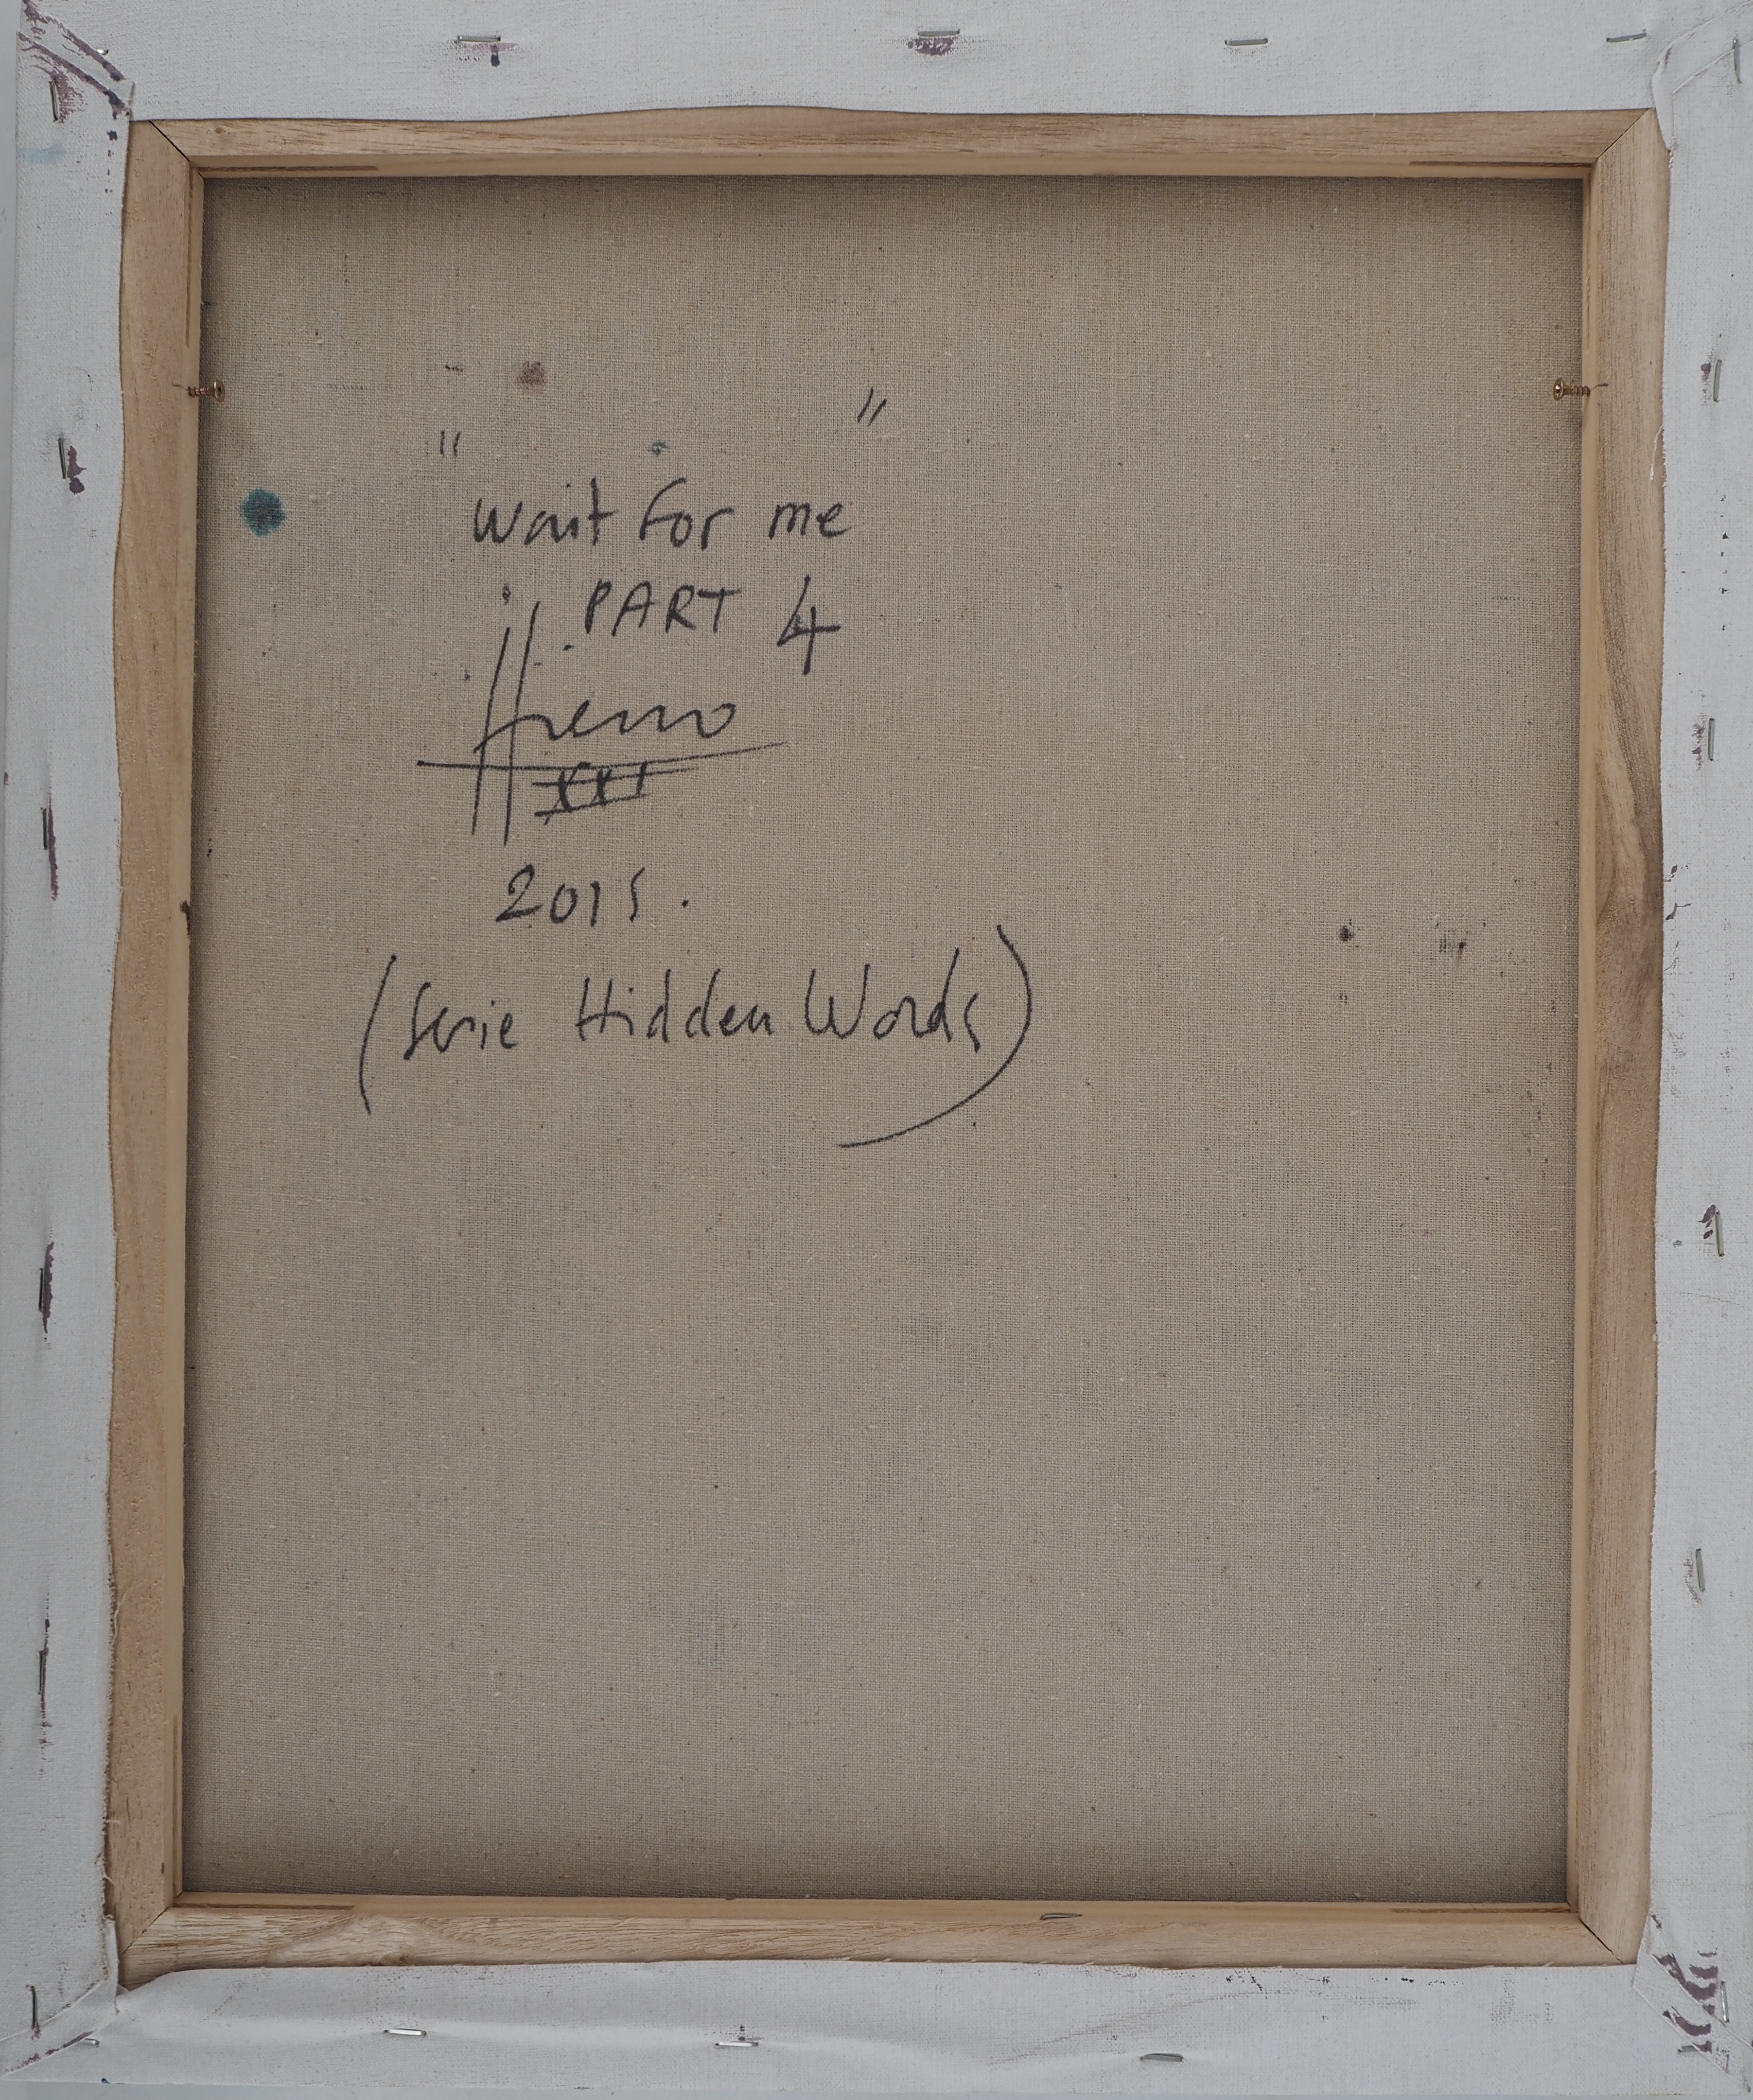 " wait for me "
PART 4
Hremo
XXI
2015.
(Serie Hidden Words)